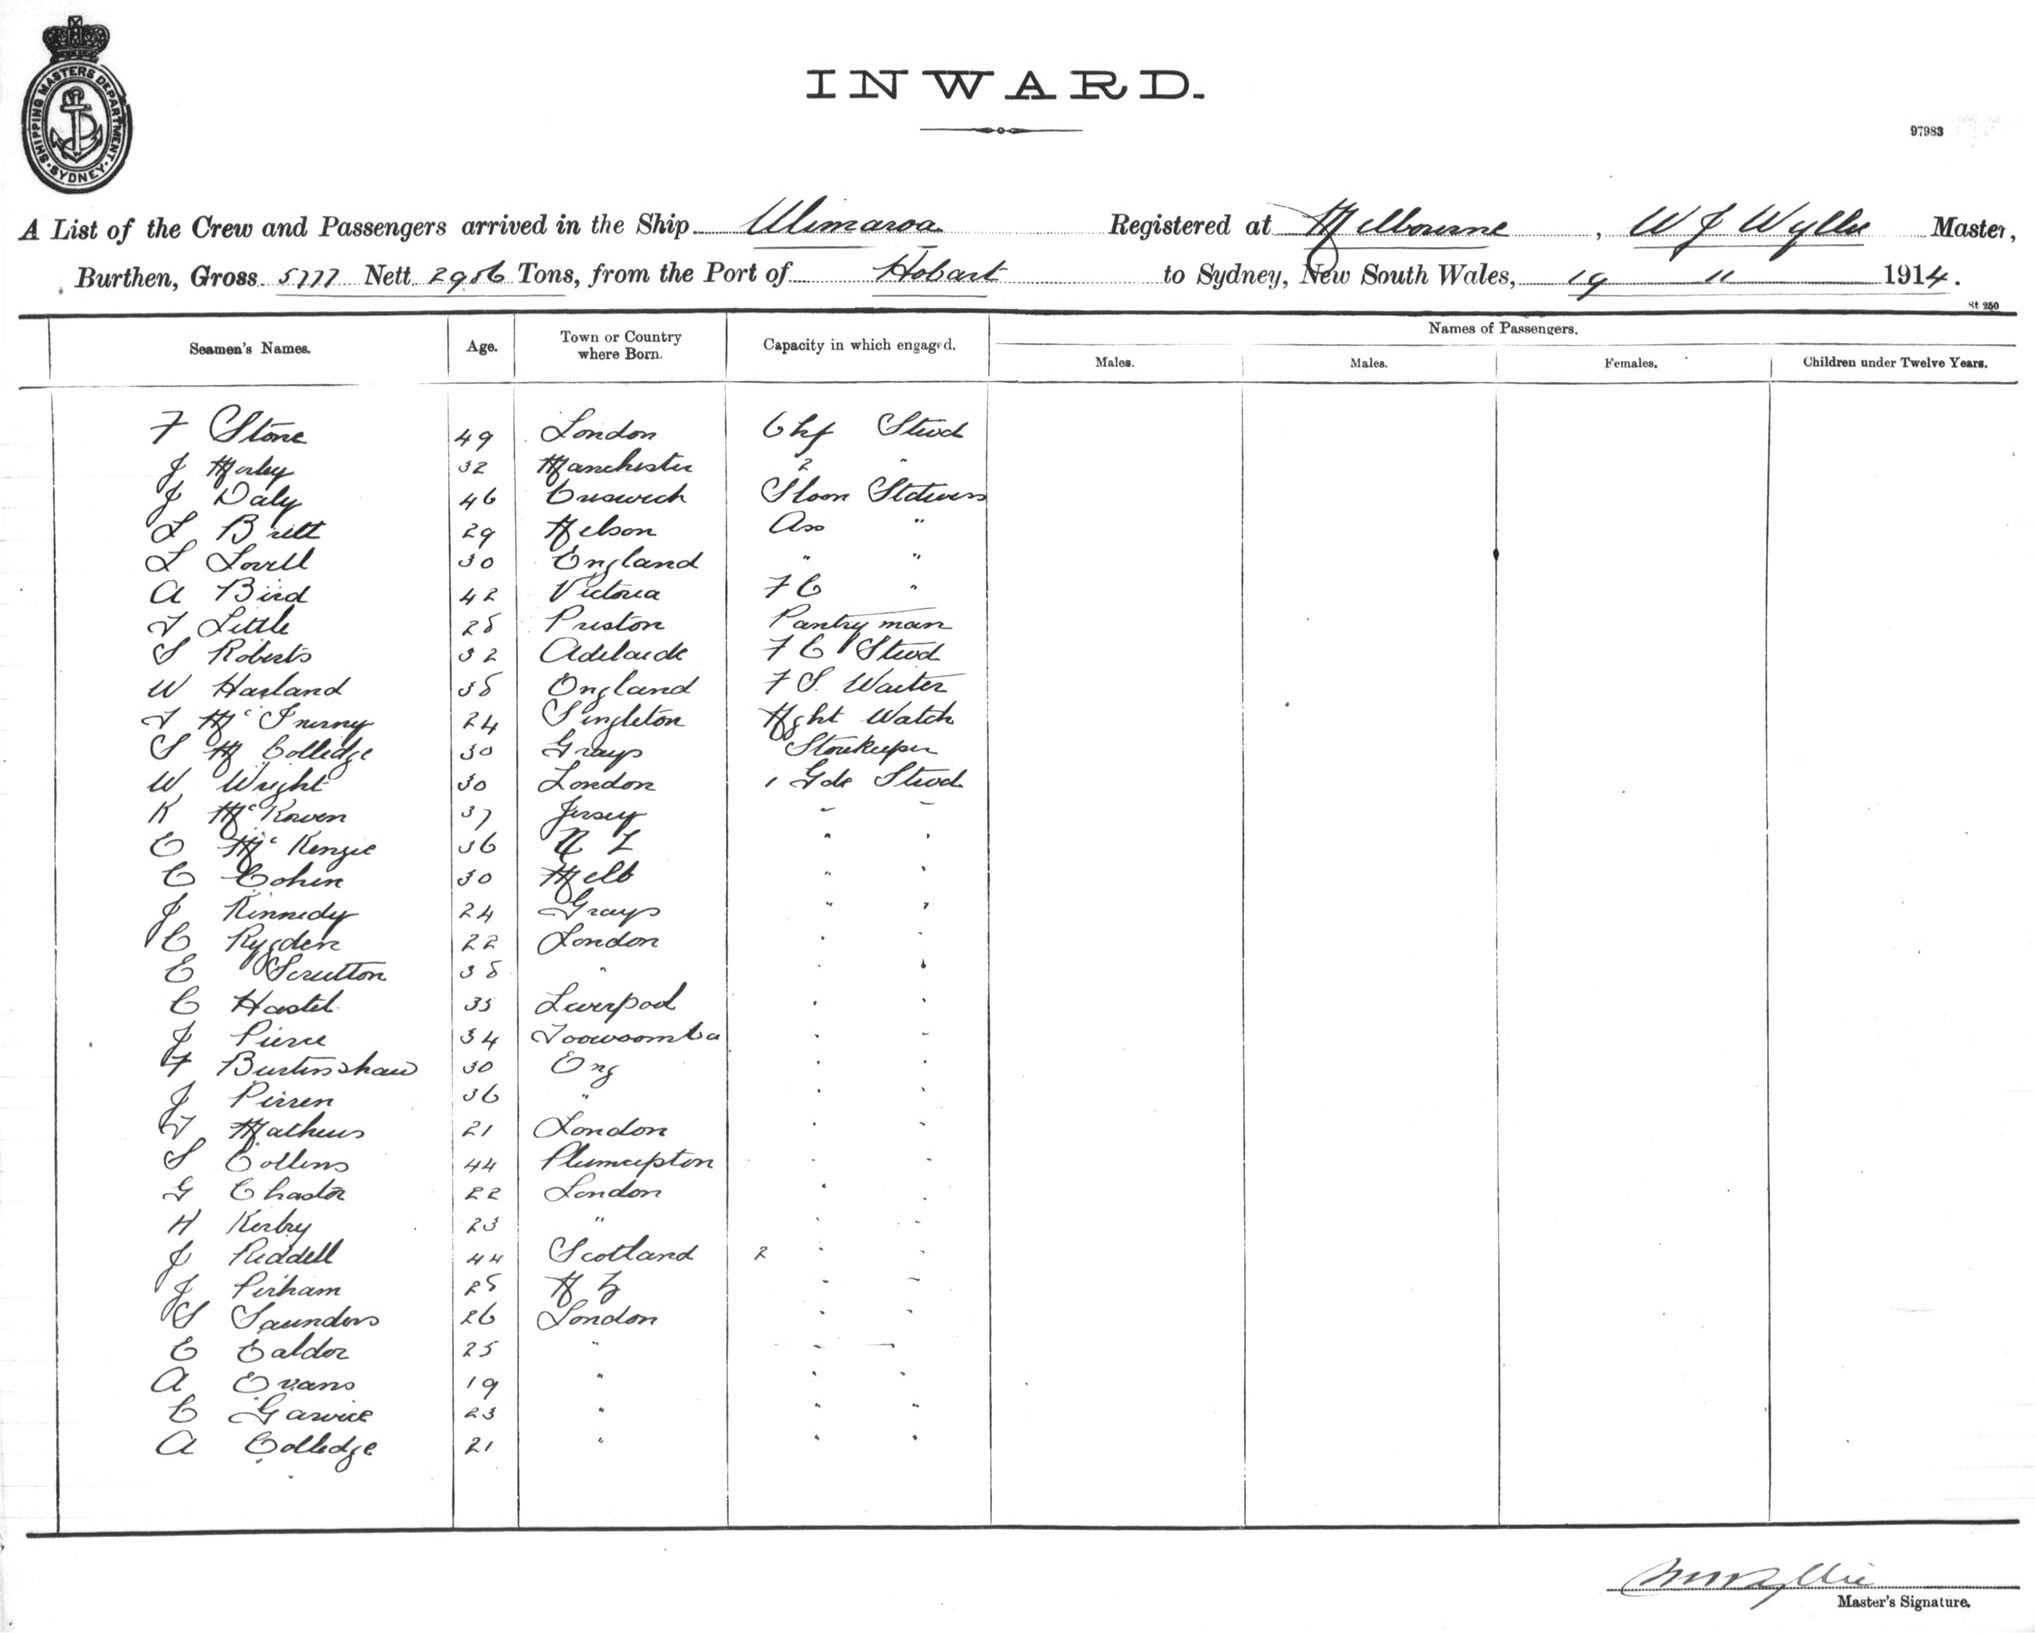 SHIPPING MASTERS DEPARTMENT. SYDNEY.
INWARD.
97983
A List of the Crew and Passengers arrived in the Ship Ulimaroa Registered at Melbourne, W J Wyllie Master,
Burthen, Gross 5777 Nett 2956 Tons, from the Port of Hobart to Sydney, New South Wales, 19 11 1914.
St 250
Seamen's Names. Age. Town or Country where Born. Capacity in which engaged. Names of Passengers.
Males. Males. Females. Children under Twelve Years.
F Stone 49 London Chf Stwd
J Morley 32 Manchester 2 "
J Daly 46 Saloon
L Britt 29 Nelson Ass "
L Lovell 30 England " "
A Bird 42 Victoria F C "
T Little 28 Preston Pantryman
S Roberts 32 Adelaide F C Stwd
W Harland 38 England F S. Waiter
T McInerny 24 Singleton Nght Watch
S M Colledge 30 Grays Storekeeper
W Wright 30 London 1 Gde Stwd
K McKowen 37 Jersey " "
C McKenzie 36 N Z " "
C Cohen 30 Melb " "
J Kennedy 24 Grays " "
C Rygden 22 London " "
E Scrutton 38 " " "
C Hastel 35 Liverpool " "
J Pierce 34 Toowoomba " "
F Burtenshaw 30 Eng " "
J Pirren 36 " " "
T Mathews 21 London " "
S Collins 44 Plumcepton " "
G Chaster 22 London " "
H Kerby 23 " " "
J Riddell 44 Scotland 2 " "
J Perham 28 N Z " "
S Saunders 26 London " "
E Calder 25 " " "
A Evans 19 " " "
C Garvice 23 " " "
A Colledge 21 " " "
W J Wyllie
Master's Signature.